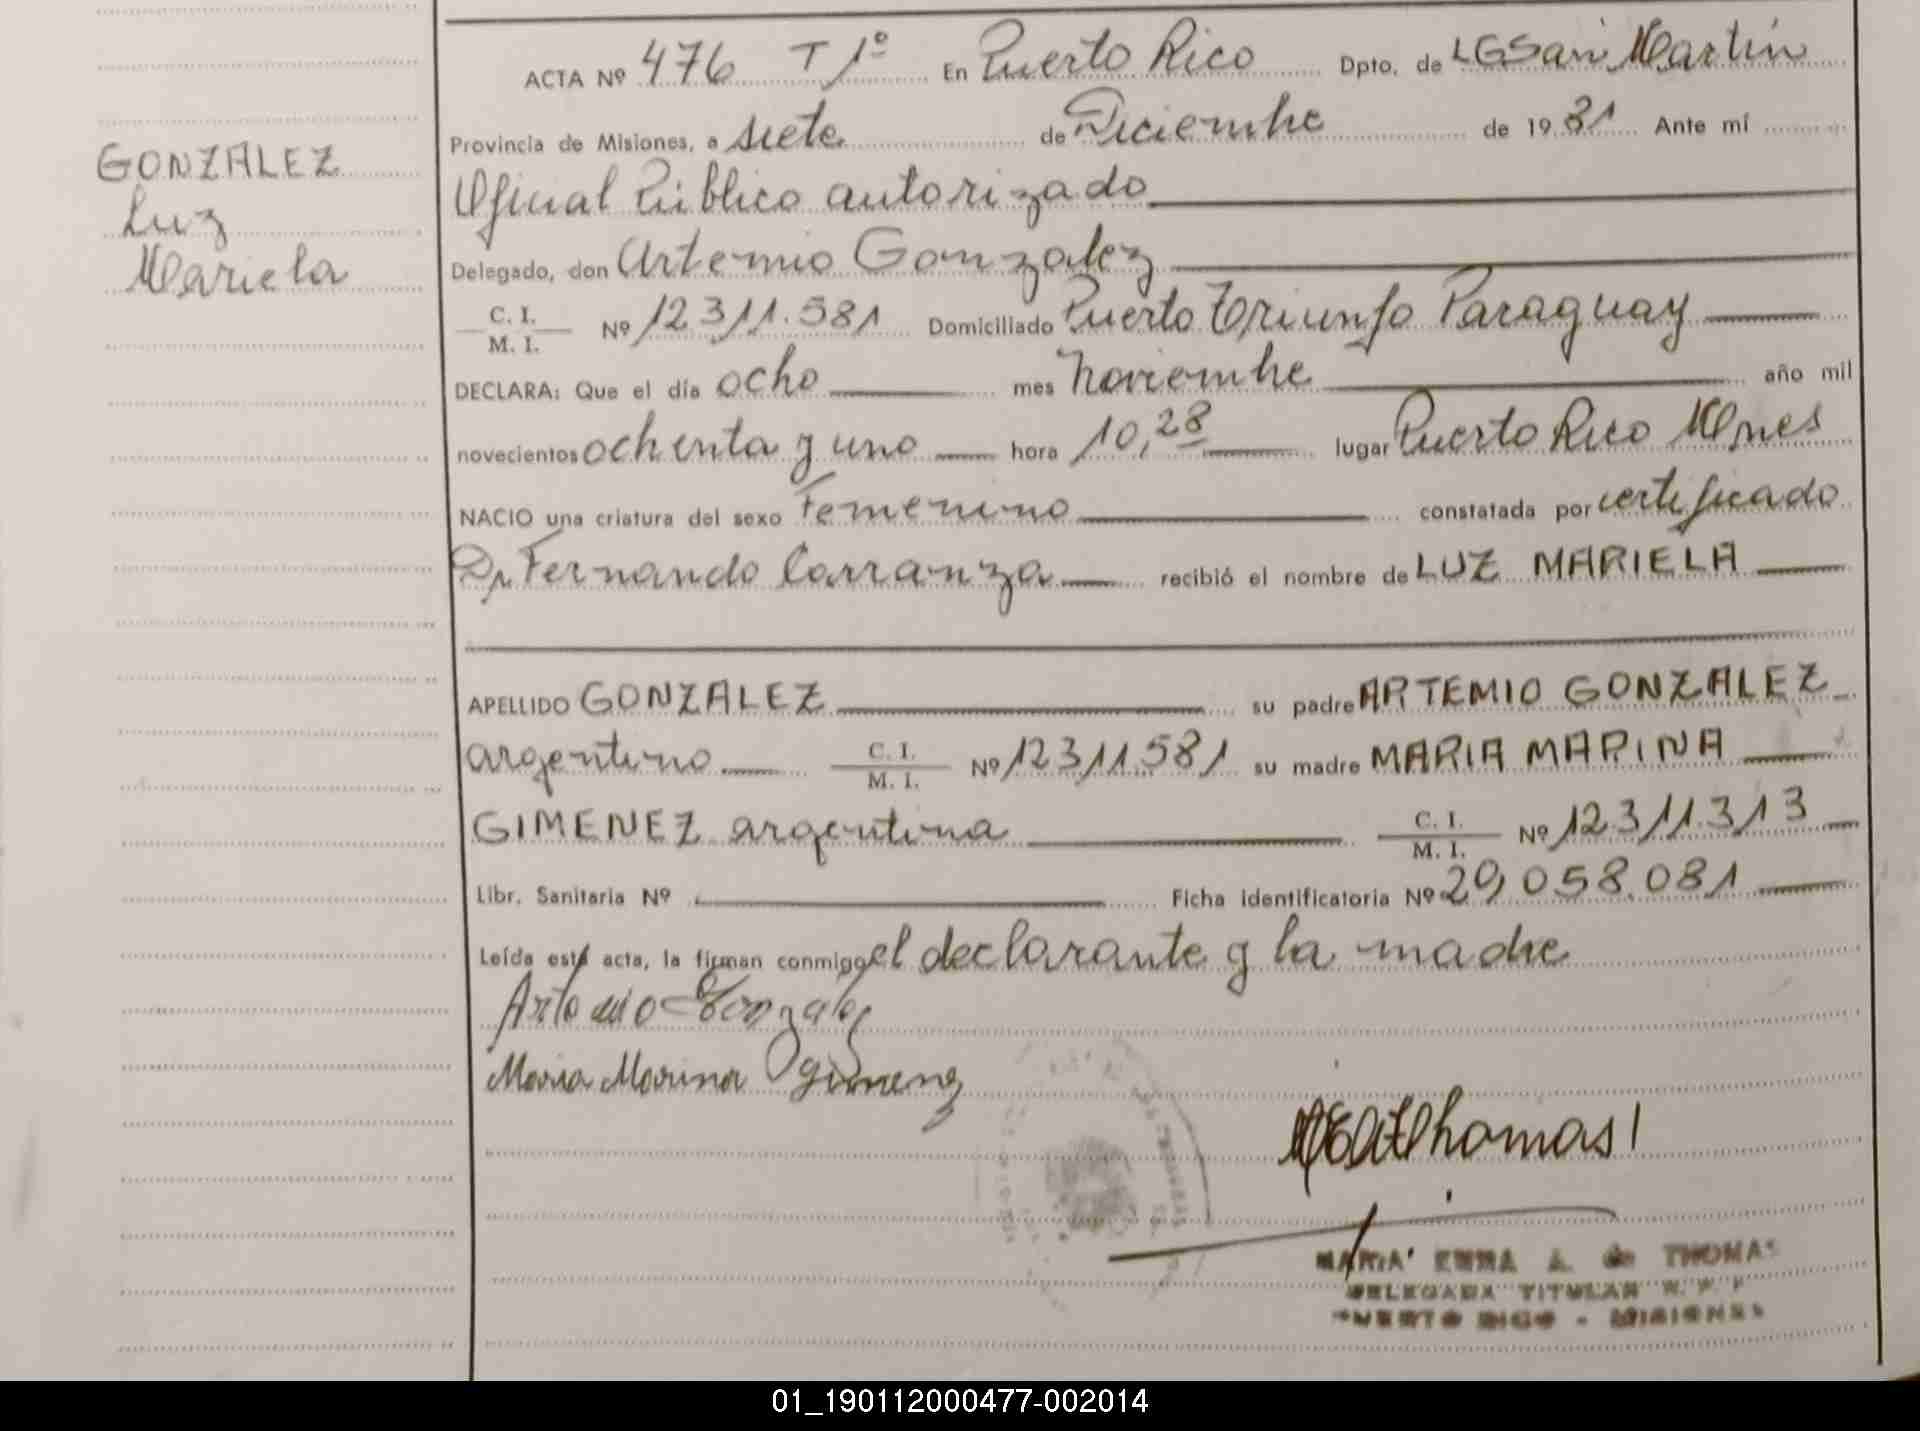 GONZALEZ
Luz
Mariela
ACTA Nº 476 T 1º En Puerto Rico Dpto. de LGSan Martín
Provincia de Misiones, a siete de Diciembre de 1981 Ante mí
Oficial Público autorizado
Delegado, don Artemio Gonzalez
C. I.
M. I. Nº 12311.581 Domiciliado Puerto Triunfo Paraguay
DECLARA: Que el día ocho mes noviembre año mil
novecientos ochenta y uno hora 10,28 lugar Puerto Rico Mnes
NACIO una criatura del sexo Femenino constatada por certificado
Dr. Fernando Carranza recibió el nombre de LUZ MARIELA
APELLIDO GONZALEZ su padre ARTEMIO GONZALEZ
argentino C. I. M. I. Nº 12311.581 su madre MARIA MARINA
GIMENEZ argentina C. I. M. I. Nº 12311.313
Libr. Sanitaria Nº Ficha identificatoria Nº 29,058.081
Leída está acta, la firman conmigo el declarante y la madre
Artemio Gonzalez
Maria Marina Gimenez
MEAdThomas
MARIA EMMA A. de THOMAS
DELEGADA TITULAR R. P.
PUERTO RICO - MISIONES
01_190112000477-002014